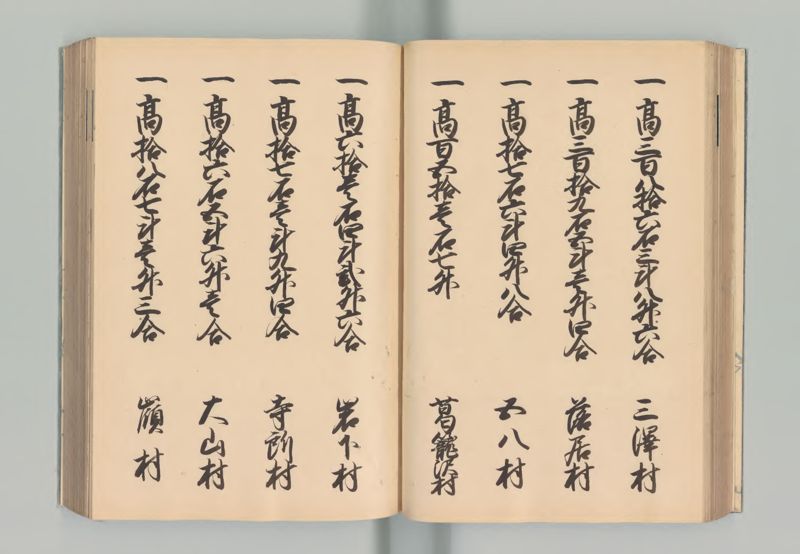 一高三百八拾六石三斗八升六合 三澤村
一高三百拾九石五斗壱升四合 落居村
一高拾七石六斗四升八合 五八村
一高百五拾壱石七升 葛籠沢村
一高六拾壱石四斗弐升六合 岩下村
一高拾七石壱斗九升四合 寺所村
一高拾六石五斗六升壱合 大山村
一高拾八石七斗壱升三合 嶺村